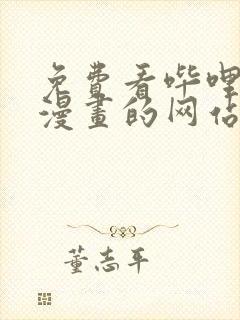 免费看哔哩
漫畫的网站
董志平